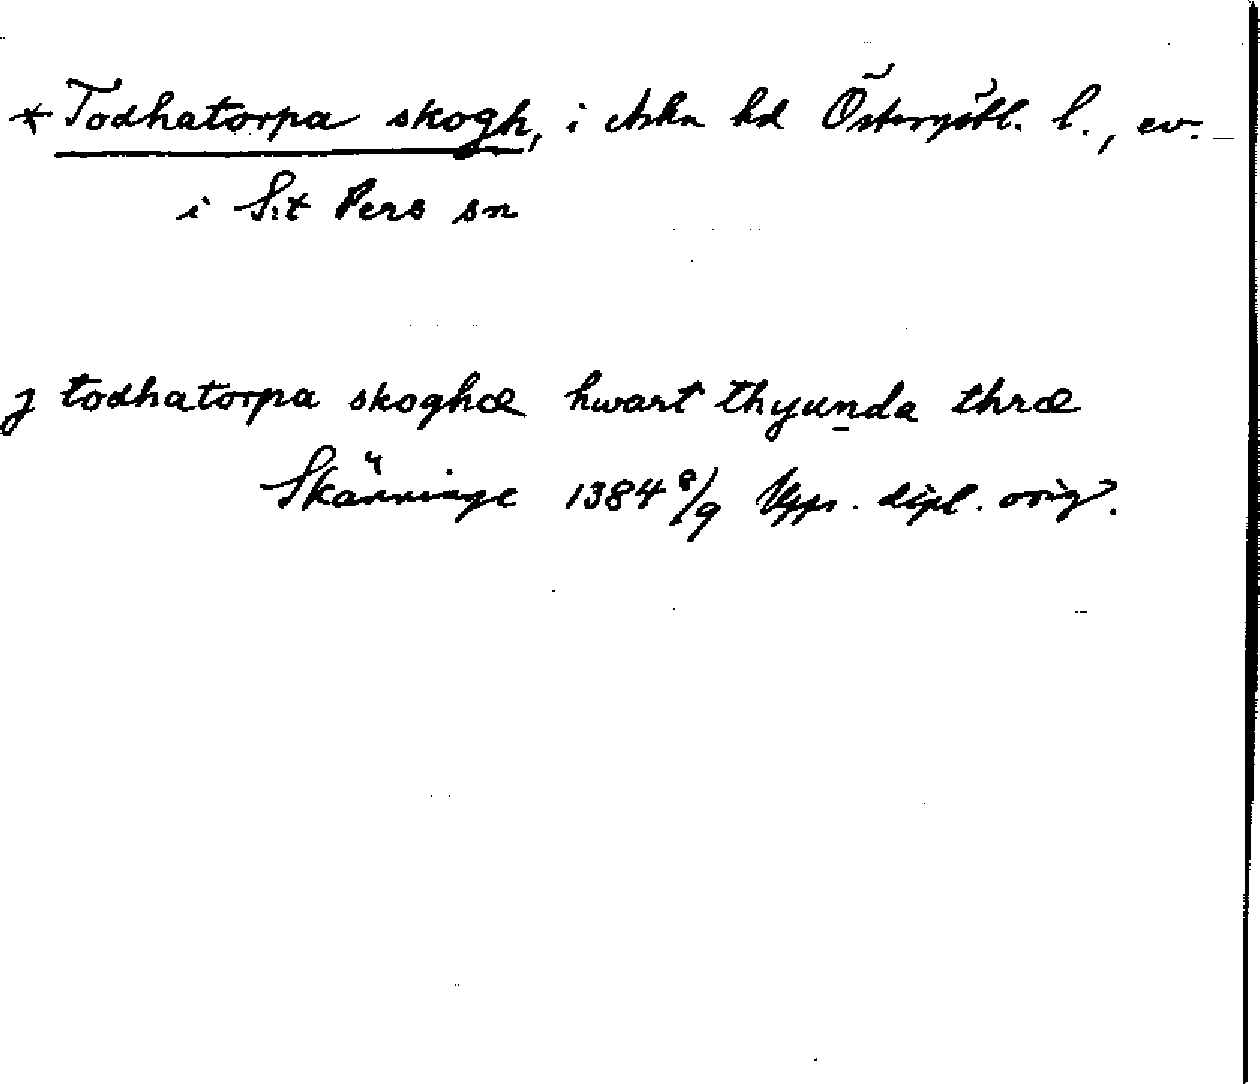 * Todhatorpa skogh, i Aska hd Östergötl. l., ev.
i S:t Pers sn
j todhatorpa skoghæ hwart thyunda thræ
Skänninge 1384 8/9 Upps. dipl. orig.